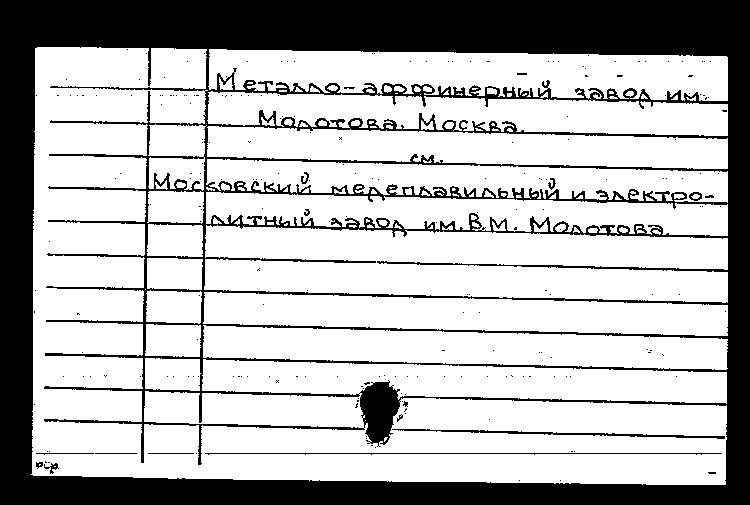 Металло-аффинерный завод им.
Молотова. Москва.
см.
Московский медеплавильный и электро-
литный завод им. В.М. Молотова.